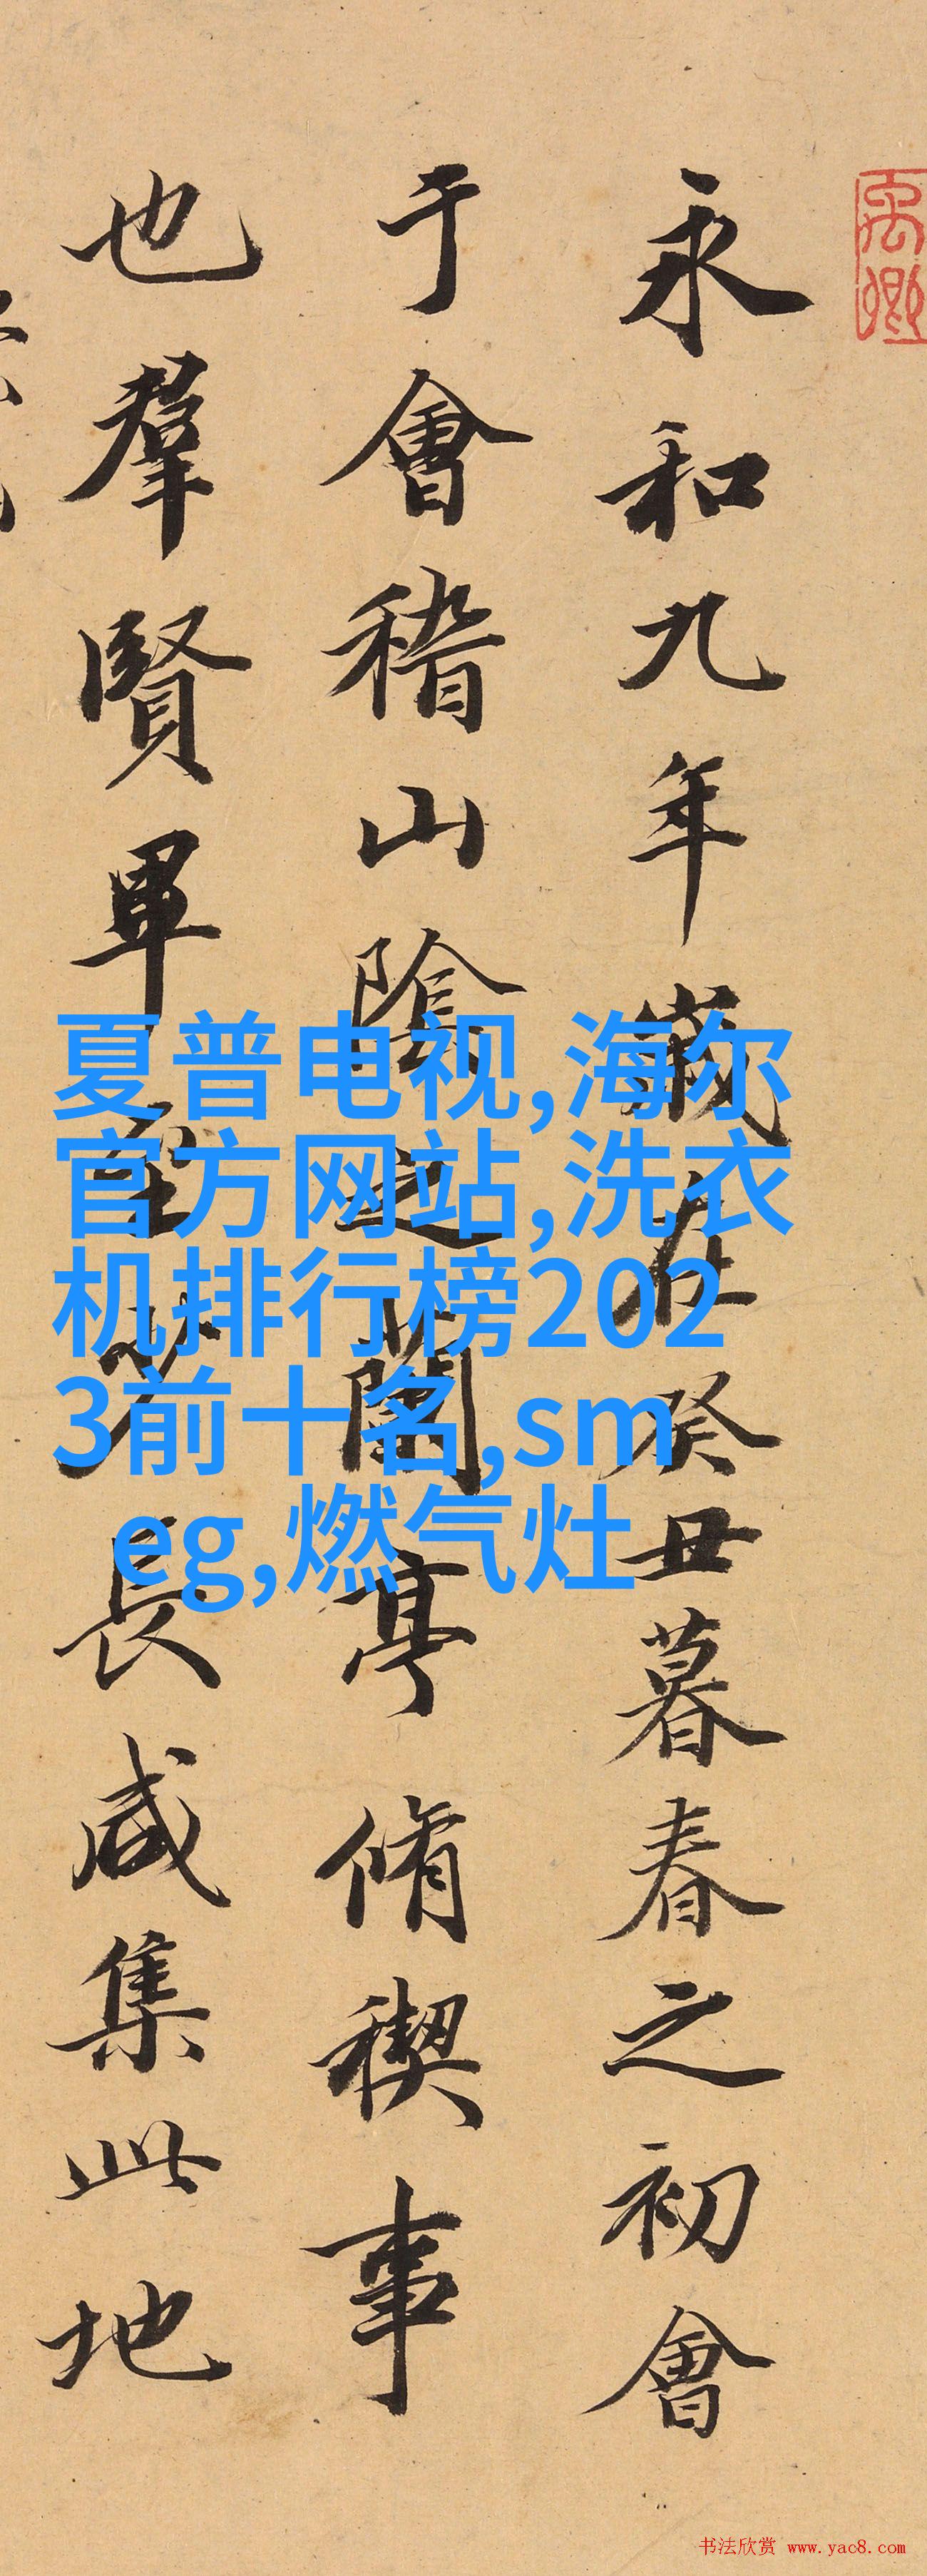 永和九年歲在癸丑暮春之初會
于會稽山陰之蘭亭脩稧事
也羣賢畢至少長咸集此地
夏普电视,海尔
官方网站,洗衣
机排行榜202
3前十名,sm
eg,燃气灶
书法欣赏 www.yac8.com